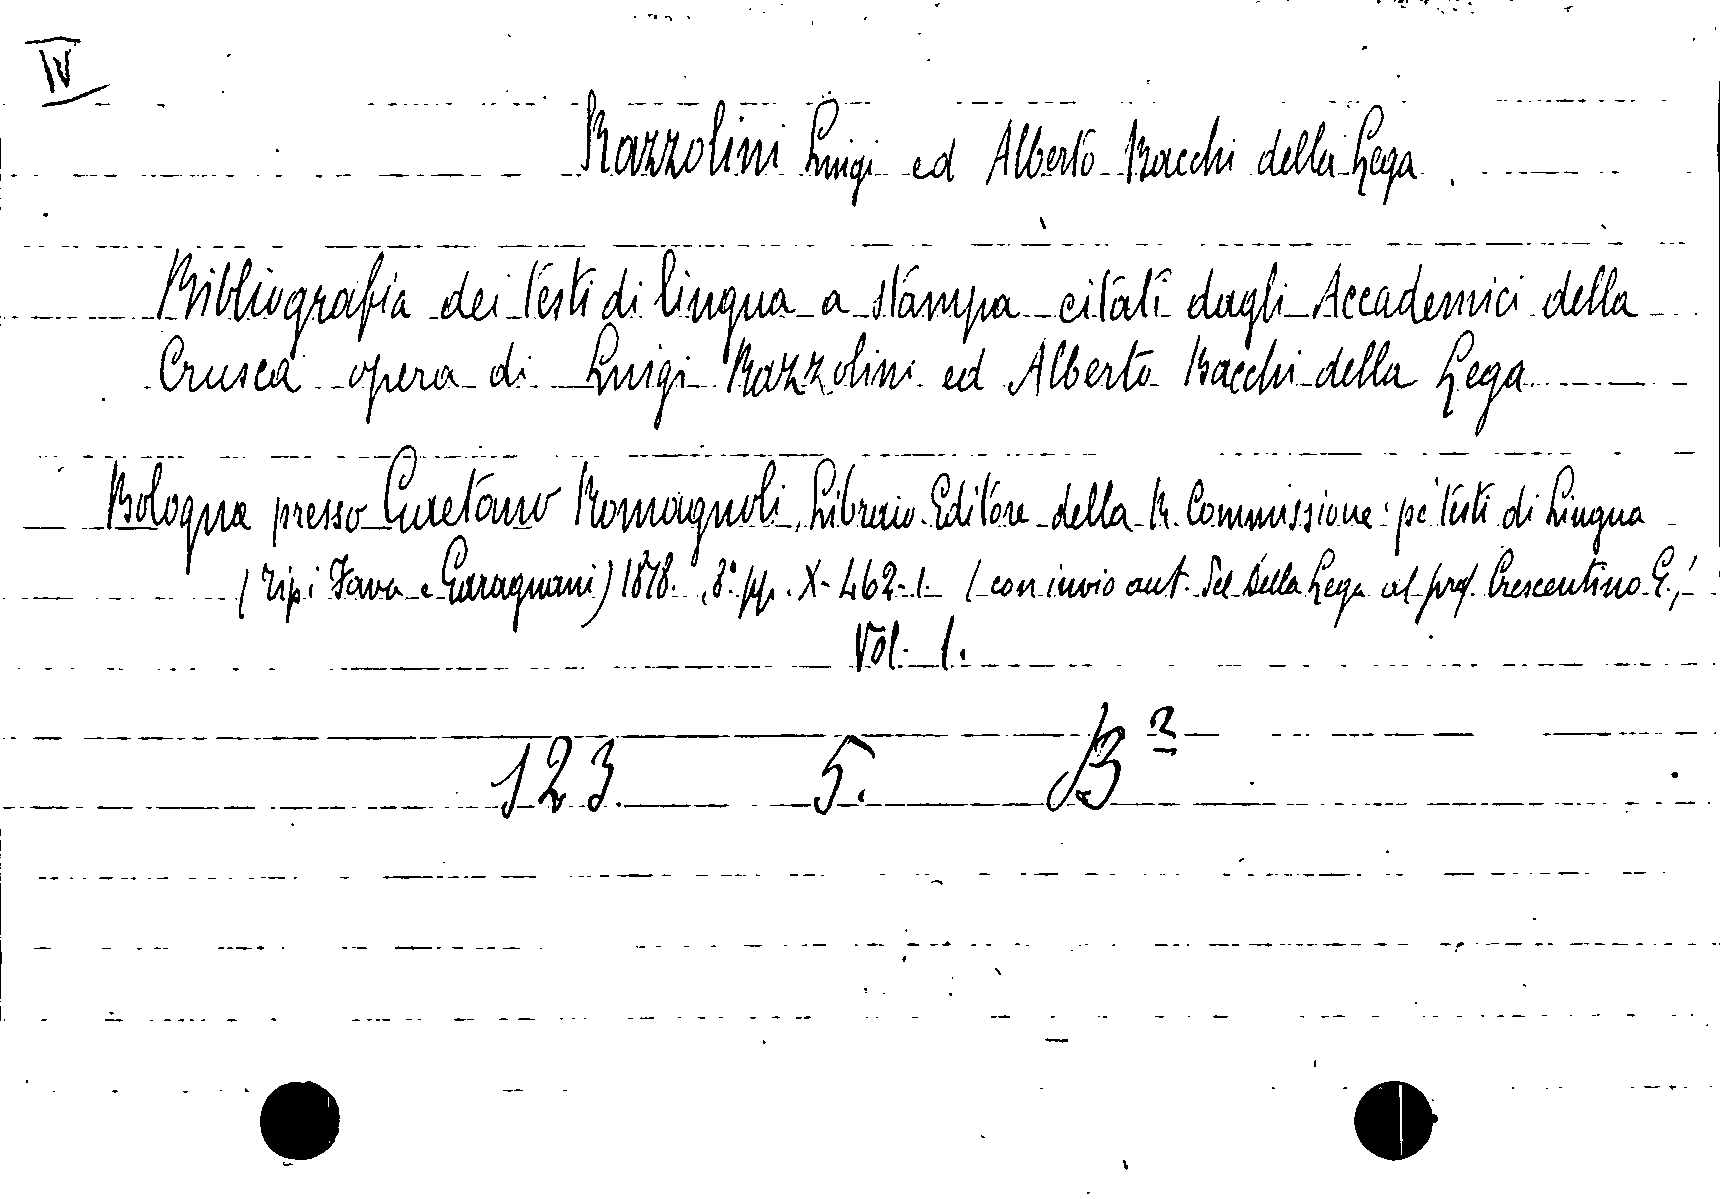 IV
Razzolini Luigi ed Alberto Bacchi della Lega
Bibliografia dei testi di lingua a stampa citati dagli Accademici della
Crusca opera di Luigi Razzolini ed Alberto Bacchi della Lega
Bologna presso Gaetano Romagnoli, Libraio-Editore della R. Commissione pe' testi di Lingua
(Tipi Fava e Garagnani) 1878. 8.º pp. X-462-1. (con invio aut. del Della Lega al prof. Crescentino G.,)
Vol. 1.
123 5. B²